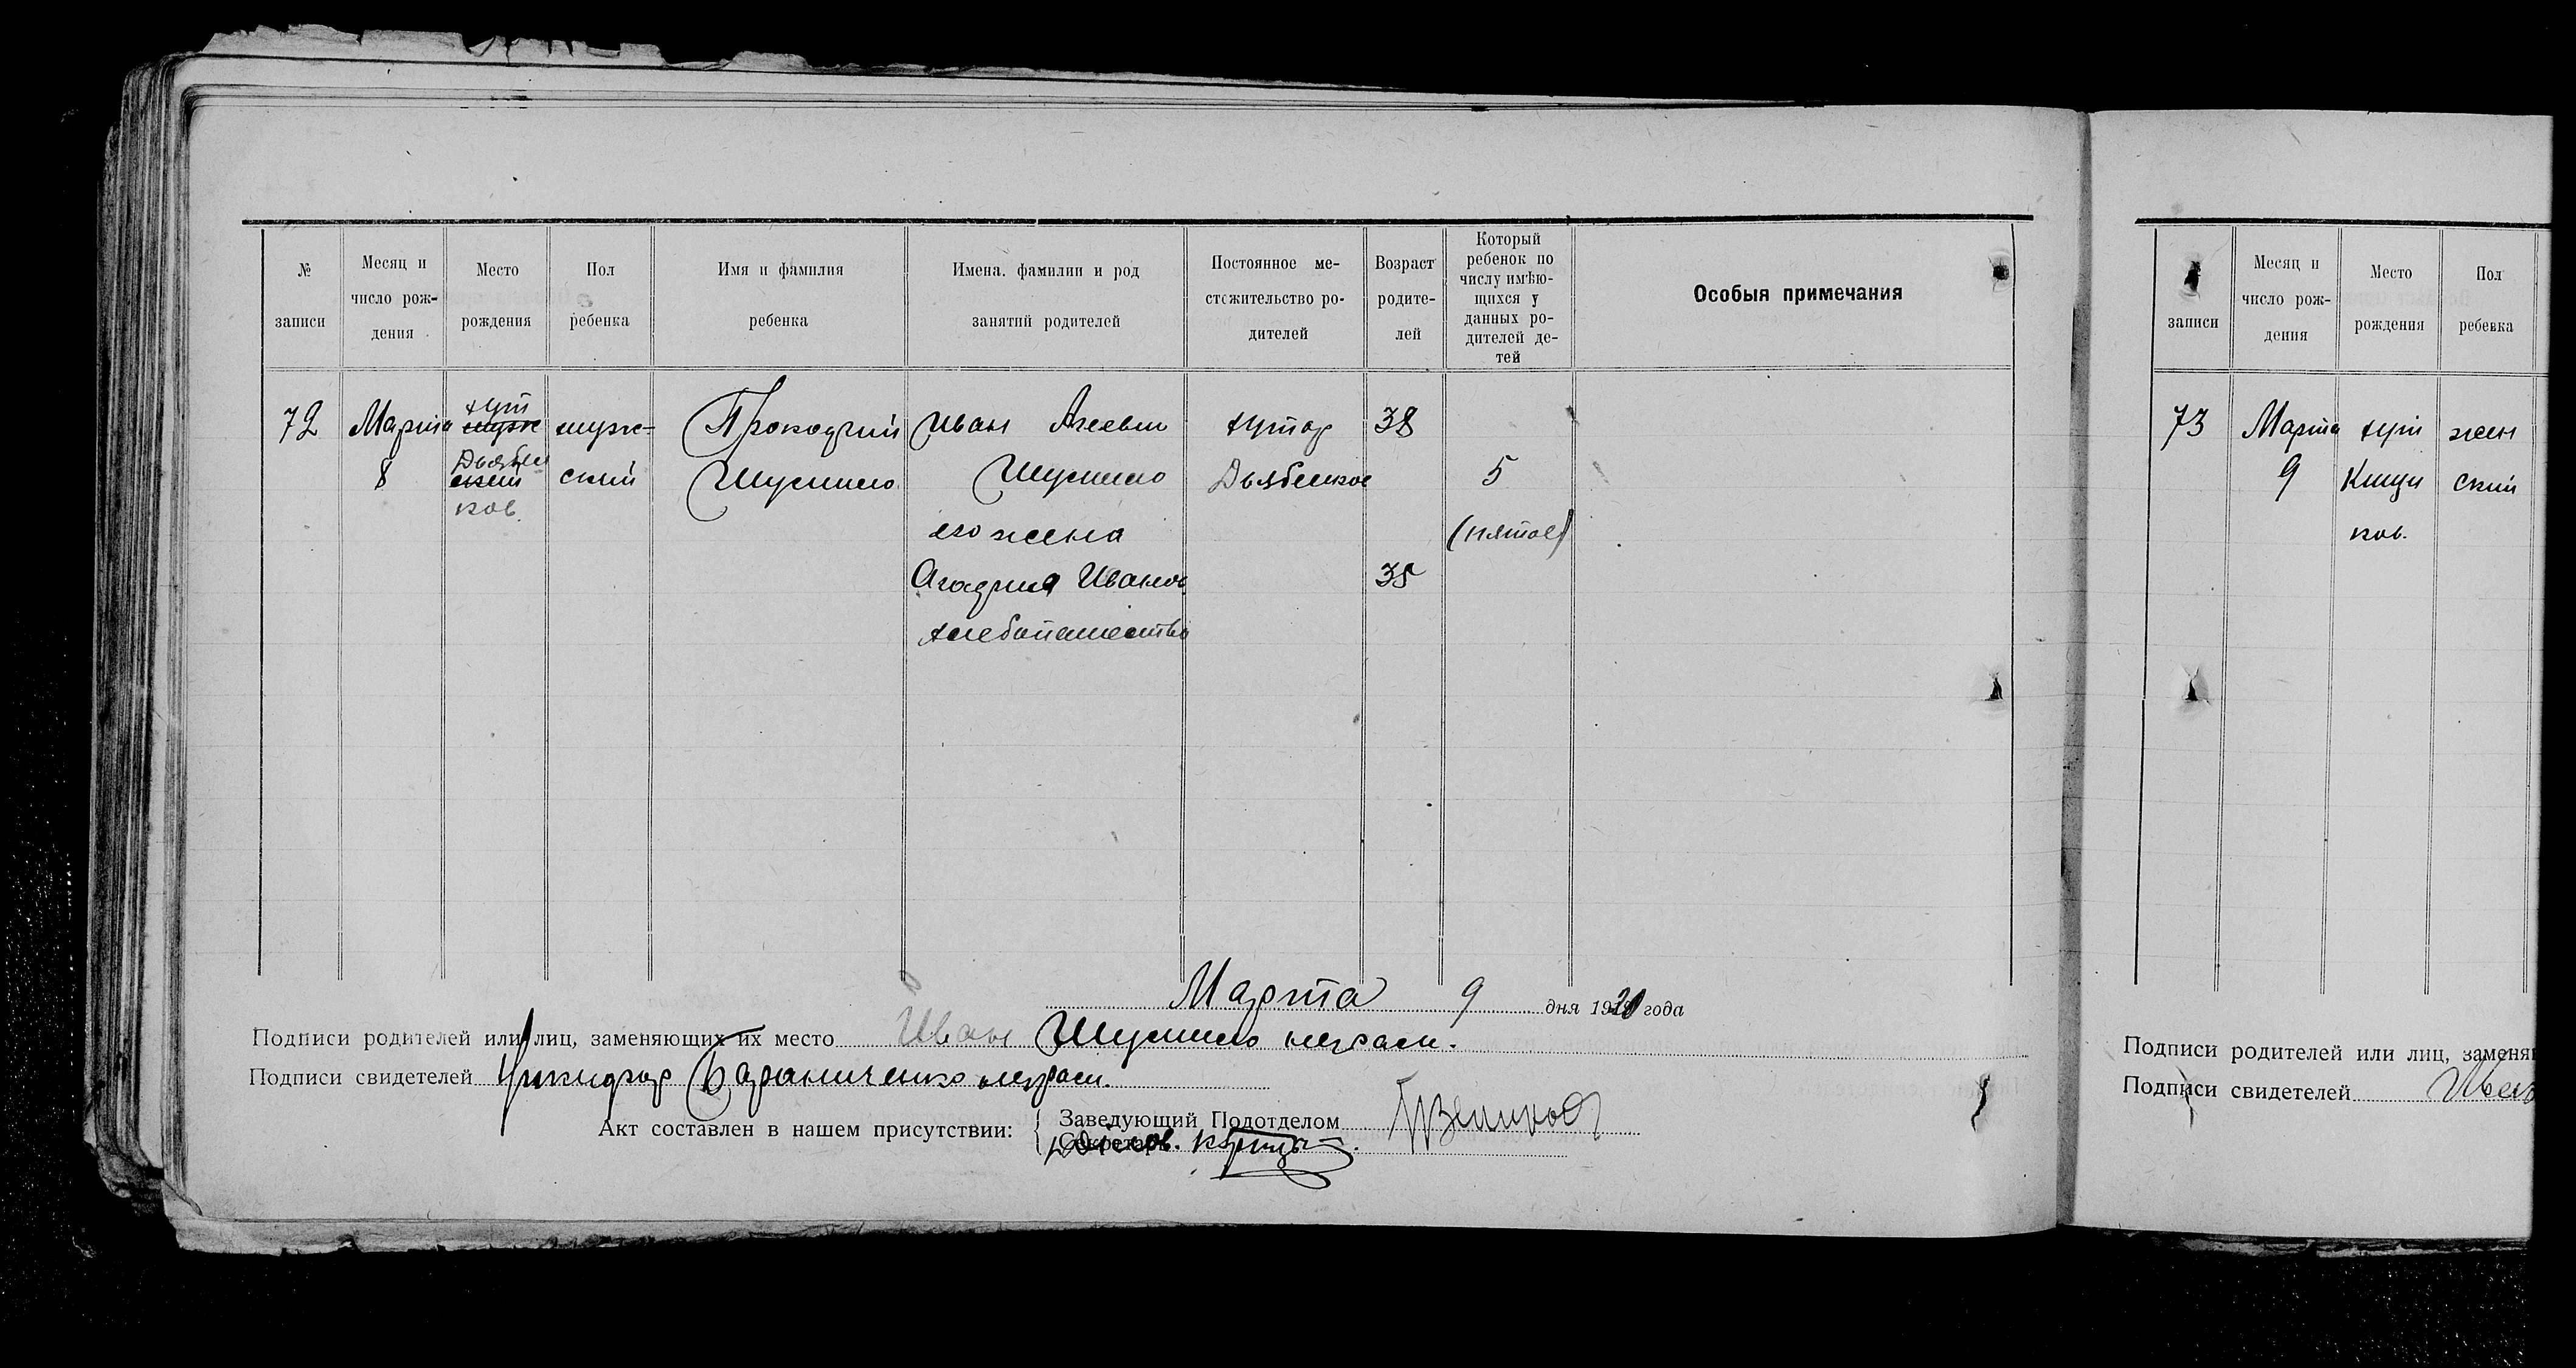 № записи
Месяц и число рождения
Место рождения
Пол ребенка
Имя и фамилия ребенка
Имена. фамилии и род занятий родителей
Постоянное местожительство родителей
Возраст родителей
Который ребенок по числу имѣющихся у данных родителей детей
Особыя примечания
72 Марта хут муже- Прокофий Иван Агеевич хутор 38
8 ский Шумило Шумило 5
ков.
его жена (пятое)
Агафия Иванов. 35
хлебопашество
Марта 9 дня 1920 года
Подписи родителей или лиц, заменяющих их место Иван Шумило неграм.
Подписи свидетелей Никифор Бараниченко неграм.
Акт составлен в нашем присутствии:
Заведующий Подотделом
Секретарь
№ записи
Месяц и число рождения
Место рождения
Пол ребенка
73 Марта хут жен
9 ский
ков.
Подписи родителей или лиц, заменя
Подписи свидетелей Иван